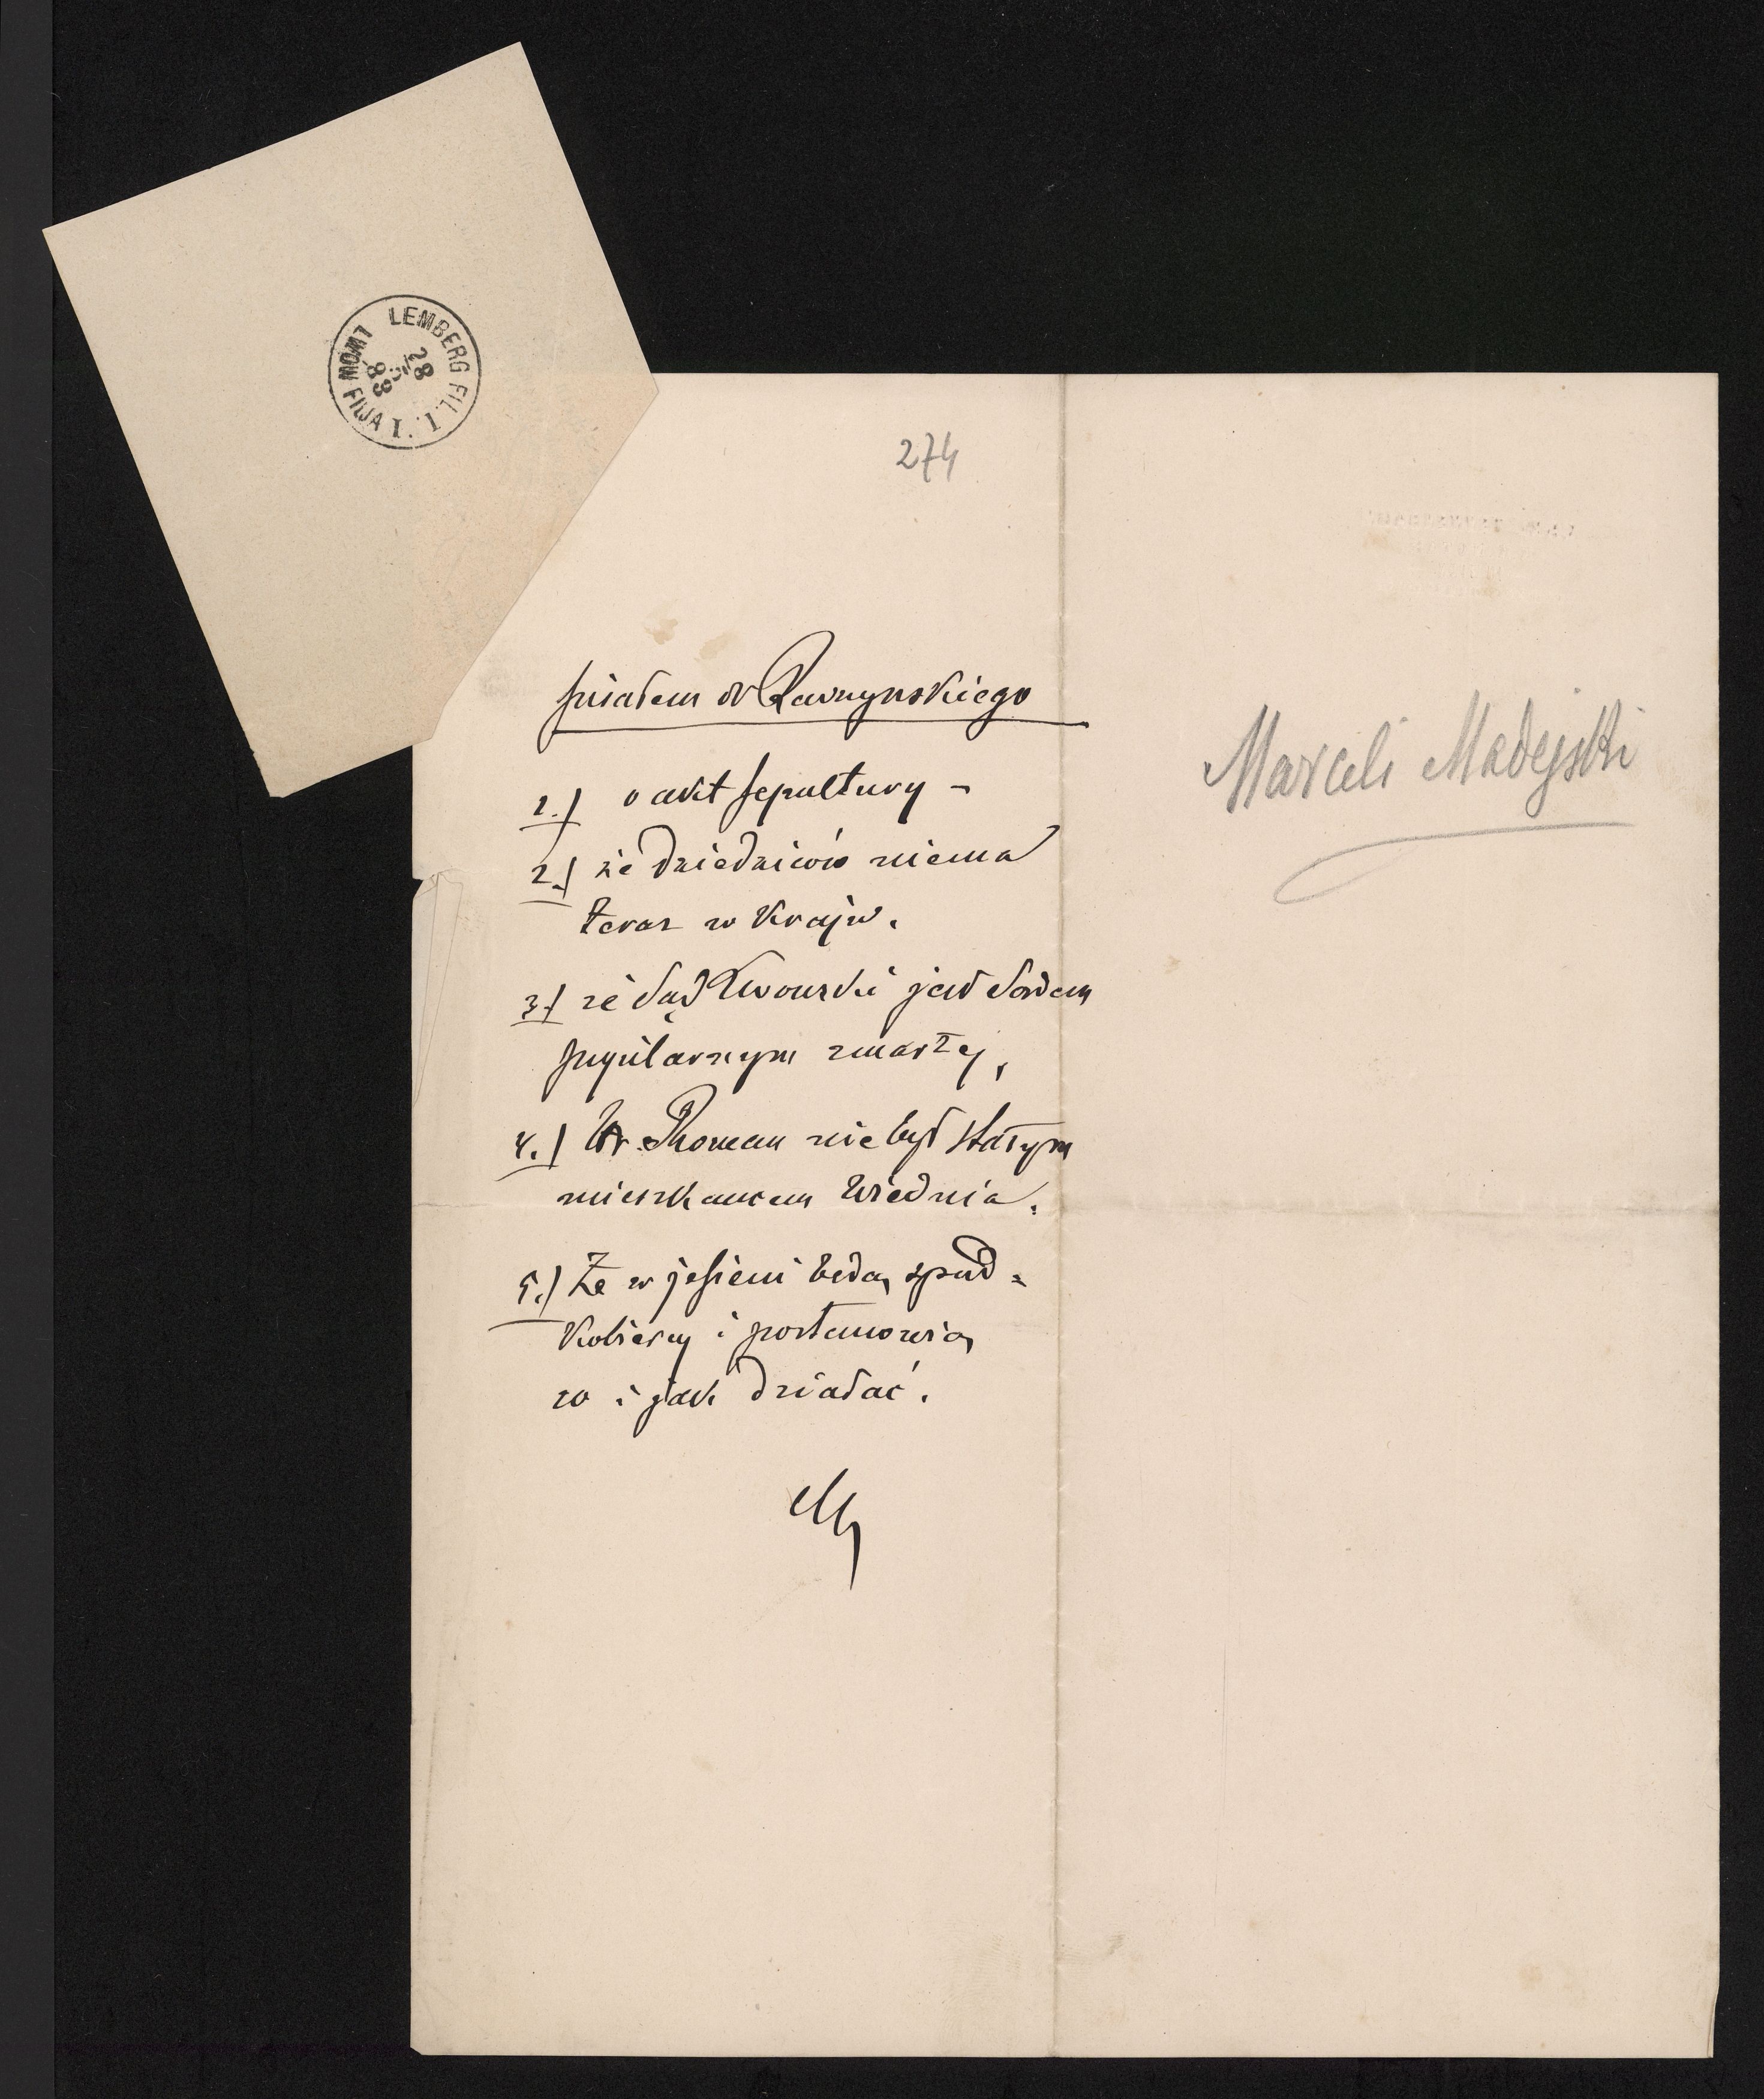 LEMBERG FIL. I.
LWÓW FILJA I.
28
83
274
pisałem dr Rawzynskiego
1.) o akt sepultury -
2.) że dziedziców niema
teraz w Kraju.
3.) że Sąd Lwowski jest Sądem
pupilarnym zmarłej,
4.) Hr. Roman nie był stałym
mieszkancem Wiednia.
5.) Że w jesieni będą spad=
kobiercy i postanowią
co i jak działać.
M
Marceli Madejski